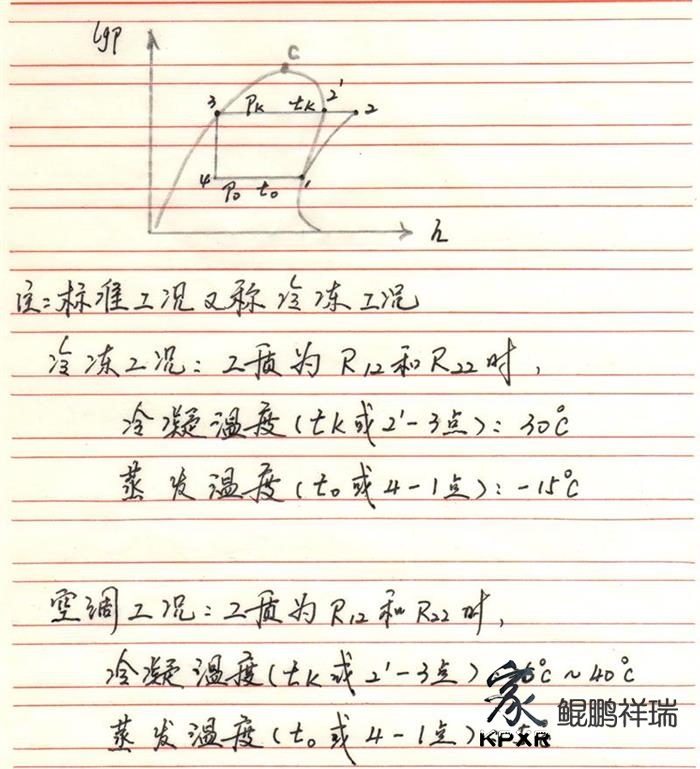 lgP
C
3 PK tK 2' 2
4 P0 t0 1
h
注:标准工况又称冷冻工况
冷冻工况:工质为R12和R22时,
冷凝温度(tK或2'-3点):30℃
蒸发温度(t0或4-1点):-15℃
空调工况:工质为R12和R22时,
冷凝温度(tK或2'-3点) ℃~40℃
蒸发温度(t0或4-1点)
家 鲲鹏祥瑞
KPXR